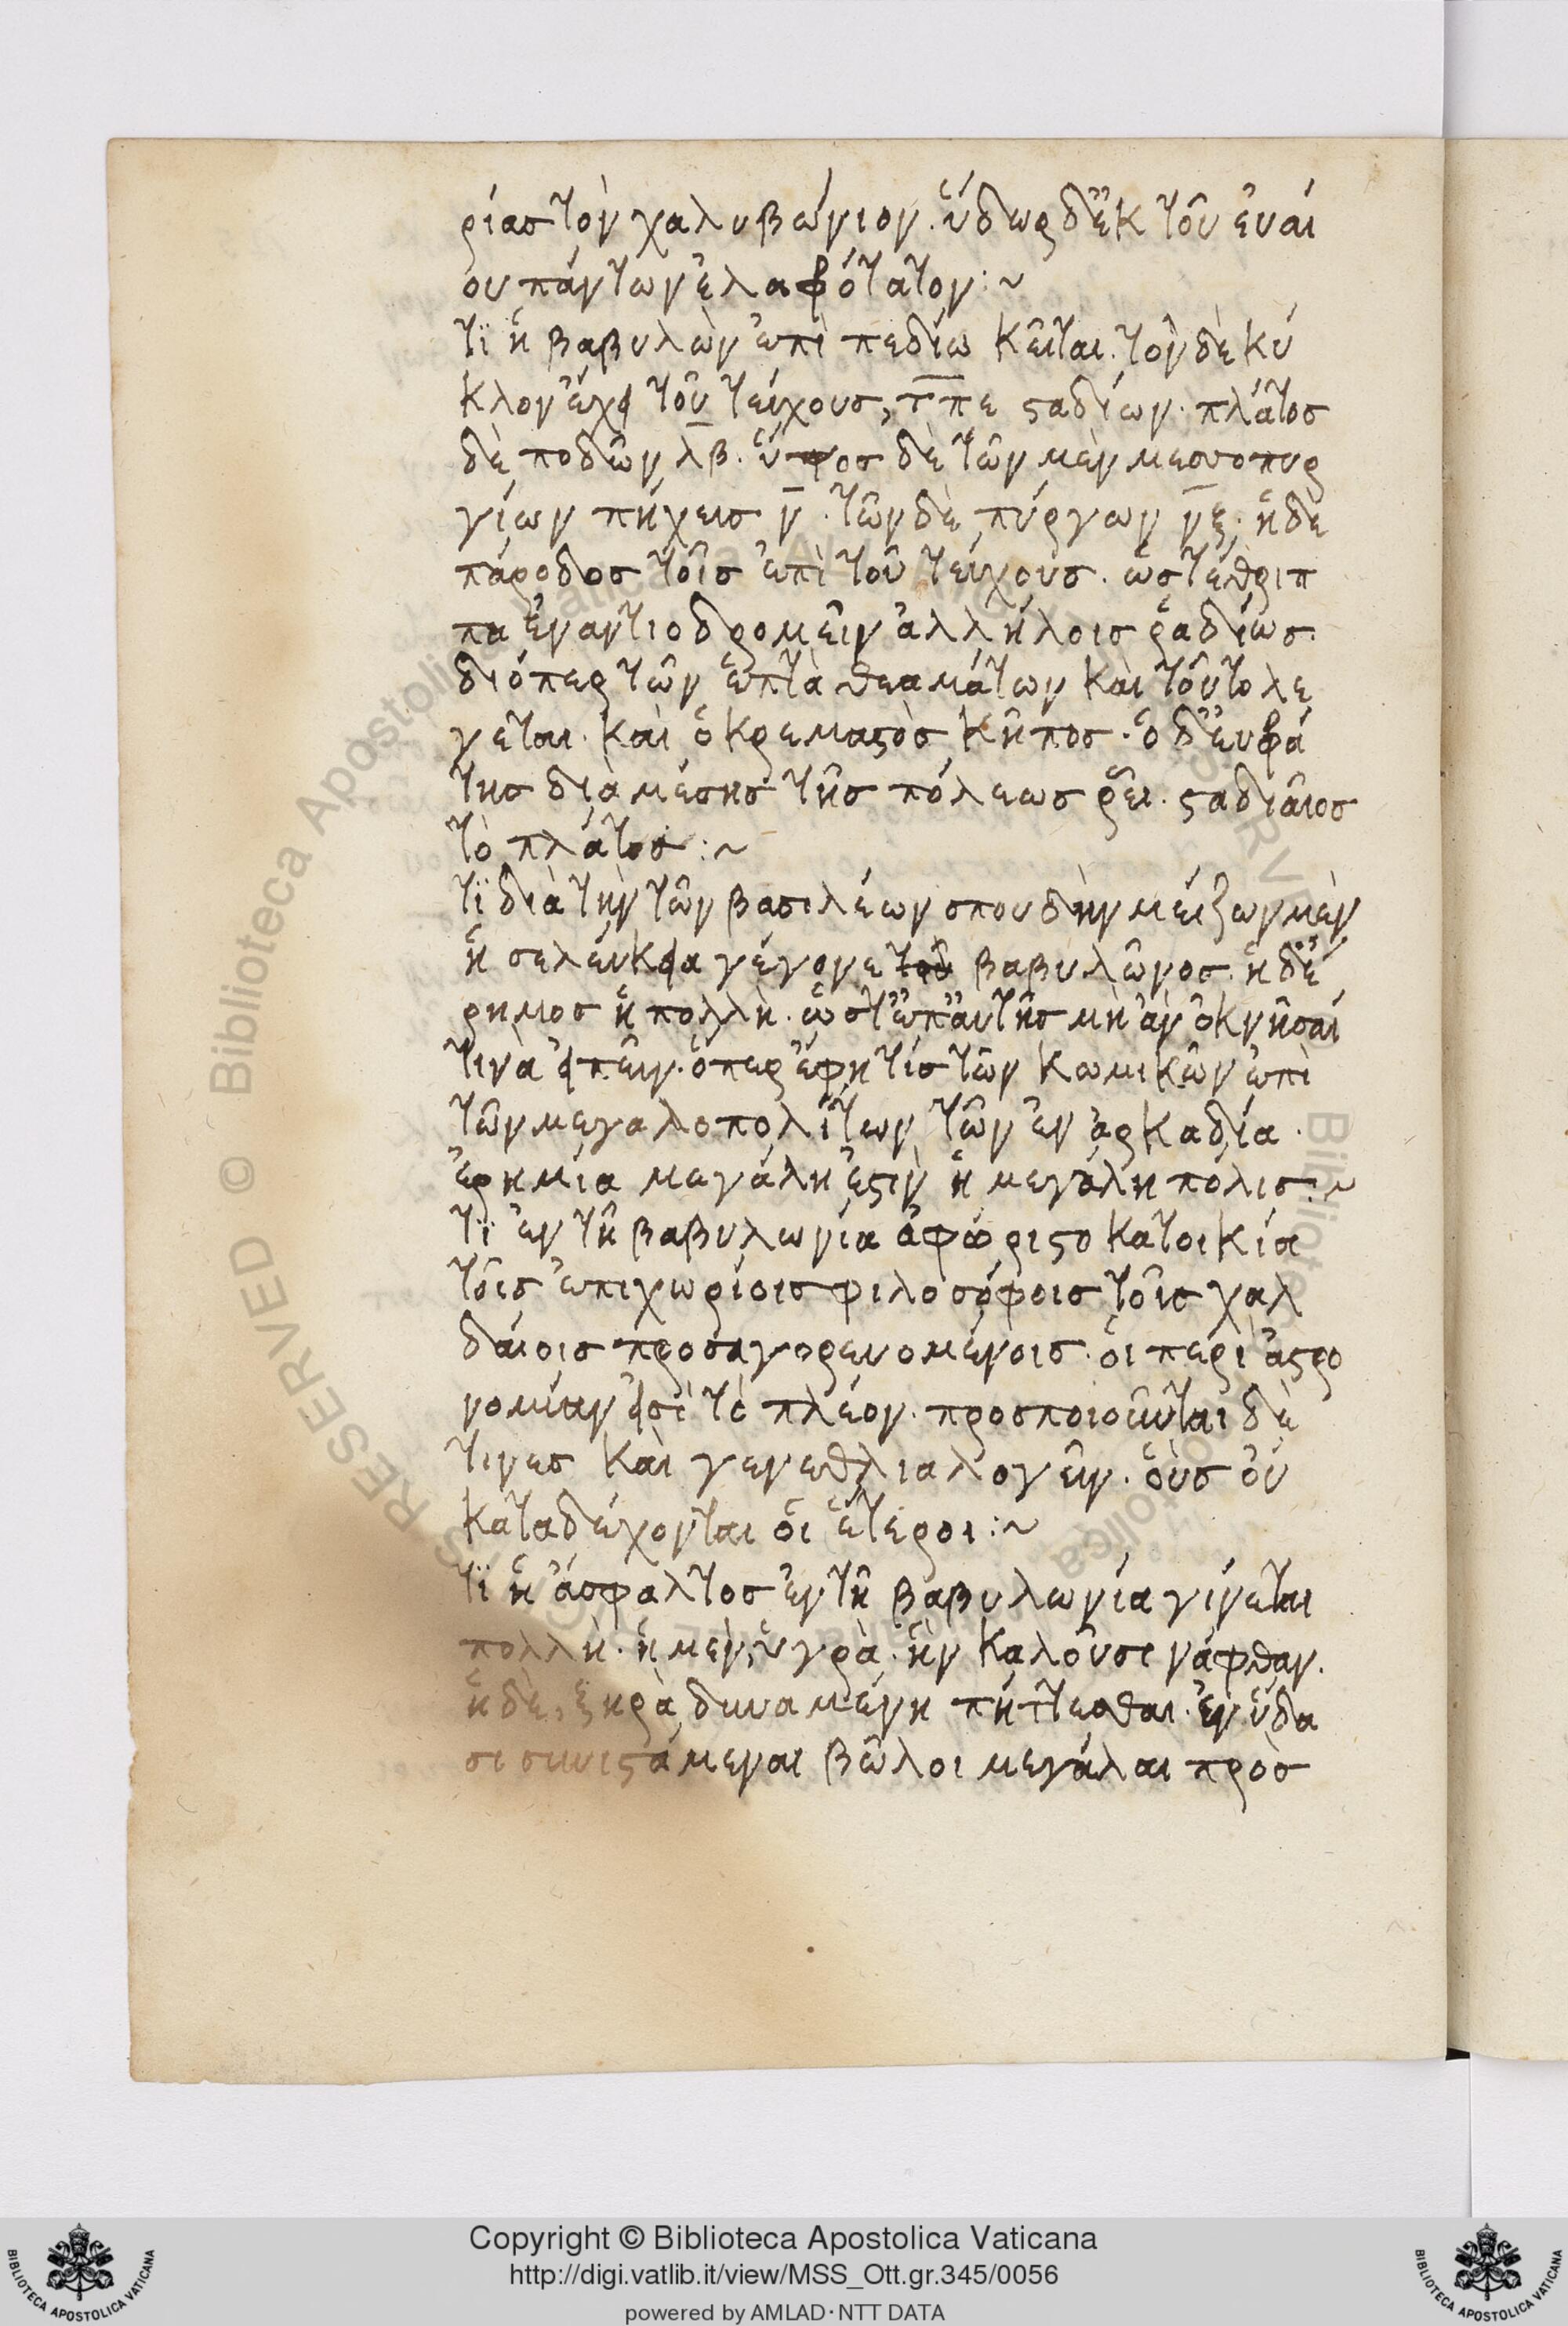 ρίας τὸν χαλυβώνιον. ὕδωρ δ' ἐκ τοῦ ἐυλαί
ου πάντων ἐλαφρότατον:~
τϊ ἡ βαβυλὼν ἐπὶ πεδίω κεῖται. τὸν δὲ κύ
κλον ἔχει τοῦ τείχους, τπε σταδίων. πλάτος
δὲ ποδῶν λβ. ὕψος δὲ τῶν μὲν μεσοπυρ
γίων πήχεις ν. τῶν δὲ πύργων νξ. ἡ δὲ
πάροδος τοῖς ἐπὶ τοῦ τείχους. ὡς τέθριπ
πα ἐναντιοδρομεῖν ἀλλήλοις ῥαδίως.
διόπερ τῶν ἑπτὰ θεαμάτων καὶ τοῦτο λέ
γεται. καὶ ὁ κρεμαστὸς κῆπος. ὁ δ' ἐυφρά
της διὰ μέσης τῆς πόλεως ῥεῖ. σταδιαῖος
τὸ πλάτος:~
τϊ διὰ τὴν τῶν βασιλέων σπουδὴν μείζων μὲν
ἡ σελεύκεια γέγονε τοῦ βαβυλῶνος. ἡ δ' ἔ
ρημος ἡ πολλὴ. ὥστ' ἐπ' αὐτῆς μὴ ἂν ὀκνῆσαί
τινὰ εἰπεῖν. ὅπερ ἔφη τίς τῶν κωμικῶν ἐπὶ
τῶν μεγαλοπολίτων τῶν ἐν ἀρκαδία.
ἐρημία μεγάλη ἐστὶν ἡ μεγάλη πόλις:~
τϊ ἐν τῆ βαβυλωνία ἀφώριστο κατοικία
τοῖς ἐπιχωρίοις φιλοσόφοις τοῖς χαλ
δαίοις προσαγορευομένοις. οἱ περὶ ἀστρο
νομίαν εἰσὶ τὸ πλέον. προσποιοῦνται δὲ
τινες καὶ γενεθλιαλογεῖν. οὓς οὐ
καταδέχονται οἱ ἕτεροι:~
τϊ ἡ ἄσφαλτος ἐν τῆ βαβυλωνία γίνεται
πολλὴ. ἡ μὲν, ὑγρὰ. ἣν καλοῦσι νάφθαν.
ἡ δὲ, ξηρὰ δυναμένη πήττεσθαι. ἐν ὕδα
σι συνιστάμεναι βῶλοι μεγάλαι πρὸς
Copyright © Biblioteca Apostolica Vaticana
http://digi.vatlib.it/view/MSS_Ott.gr.345/0056
powered by AMLAD·NTT DATA